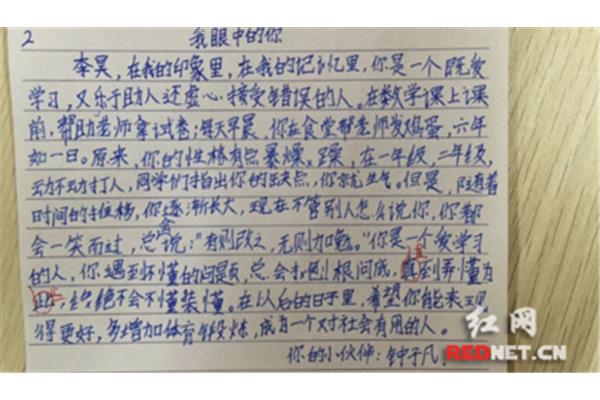 2
我眼中的你
李昊，在我的印象里，在我的记忆里，你是一个既爱
学习，又乐于助人还虚心接受错误的人。在数学课上课
前，帮助老师拿试卷；每天早晨，你在食堂帮老师发鸡蛋，六年
如一日。原来，你的性格有点暴燥，躁，在一年级，二年级，
动不动打人，同学们指出你的缺点，你就生气。但是，随着
时间的推移，你逐渐长大，现在不管别人怎么说你，你都
会一笑而过，总会说："有则改之，无则加勉。"你是一个爱学习
的人，你遇到不懂的问题，总会打包根问成，直到弄懂为
止，绝不会不懂装懂。在以后的日子里，希望你能表现
得更好，多增加体育锻炼，成为一个对社会有用的人。
你的小伙伴：钟子凡
红网
REDNET.CN